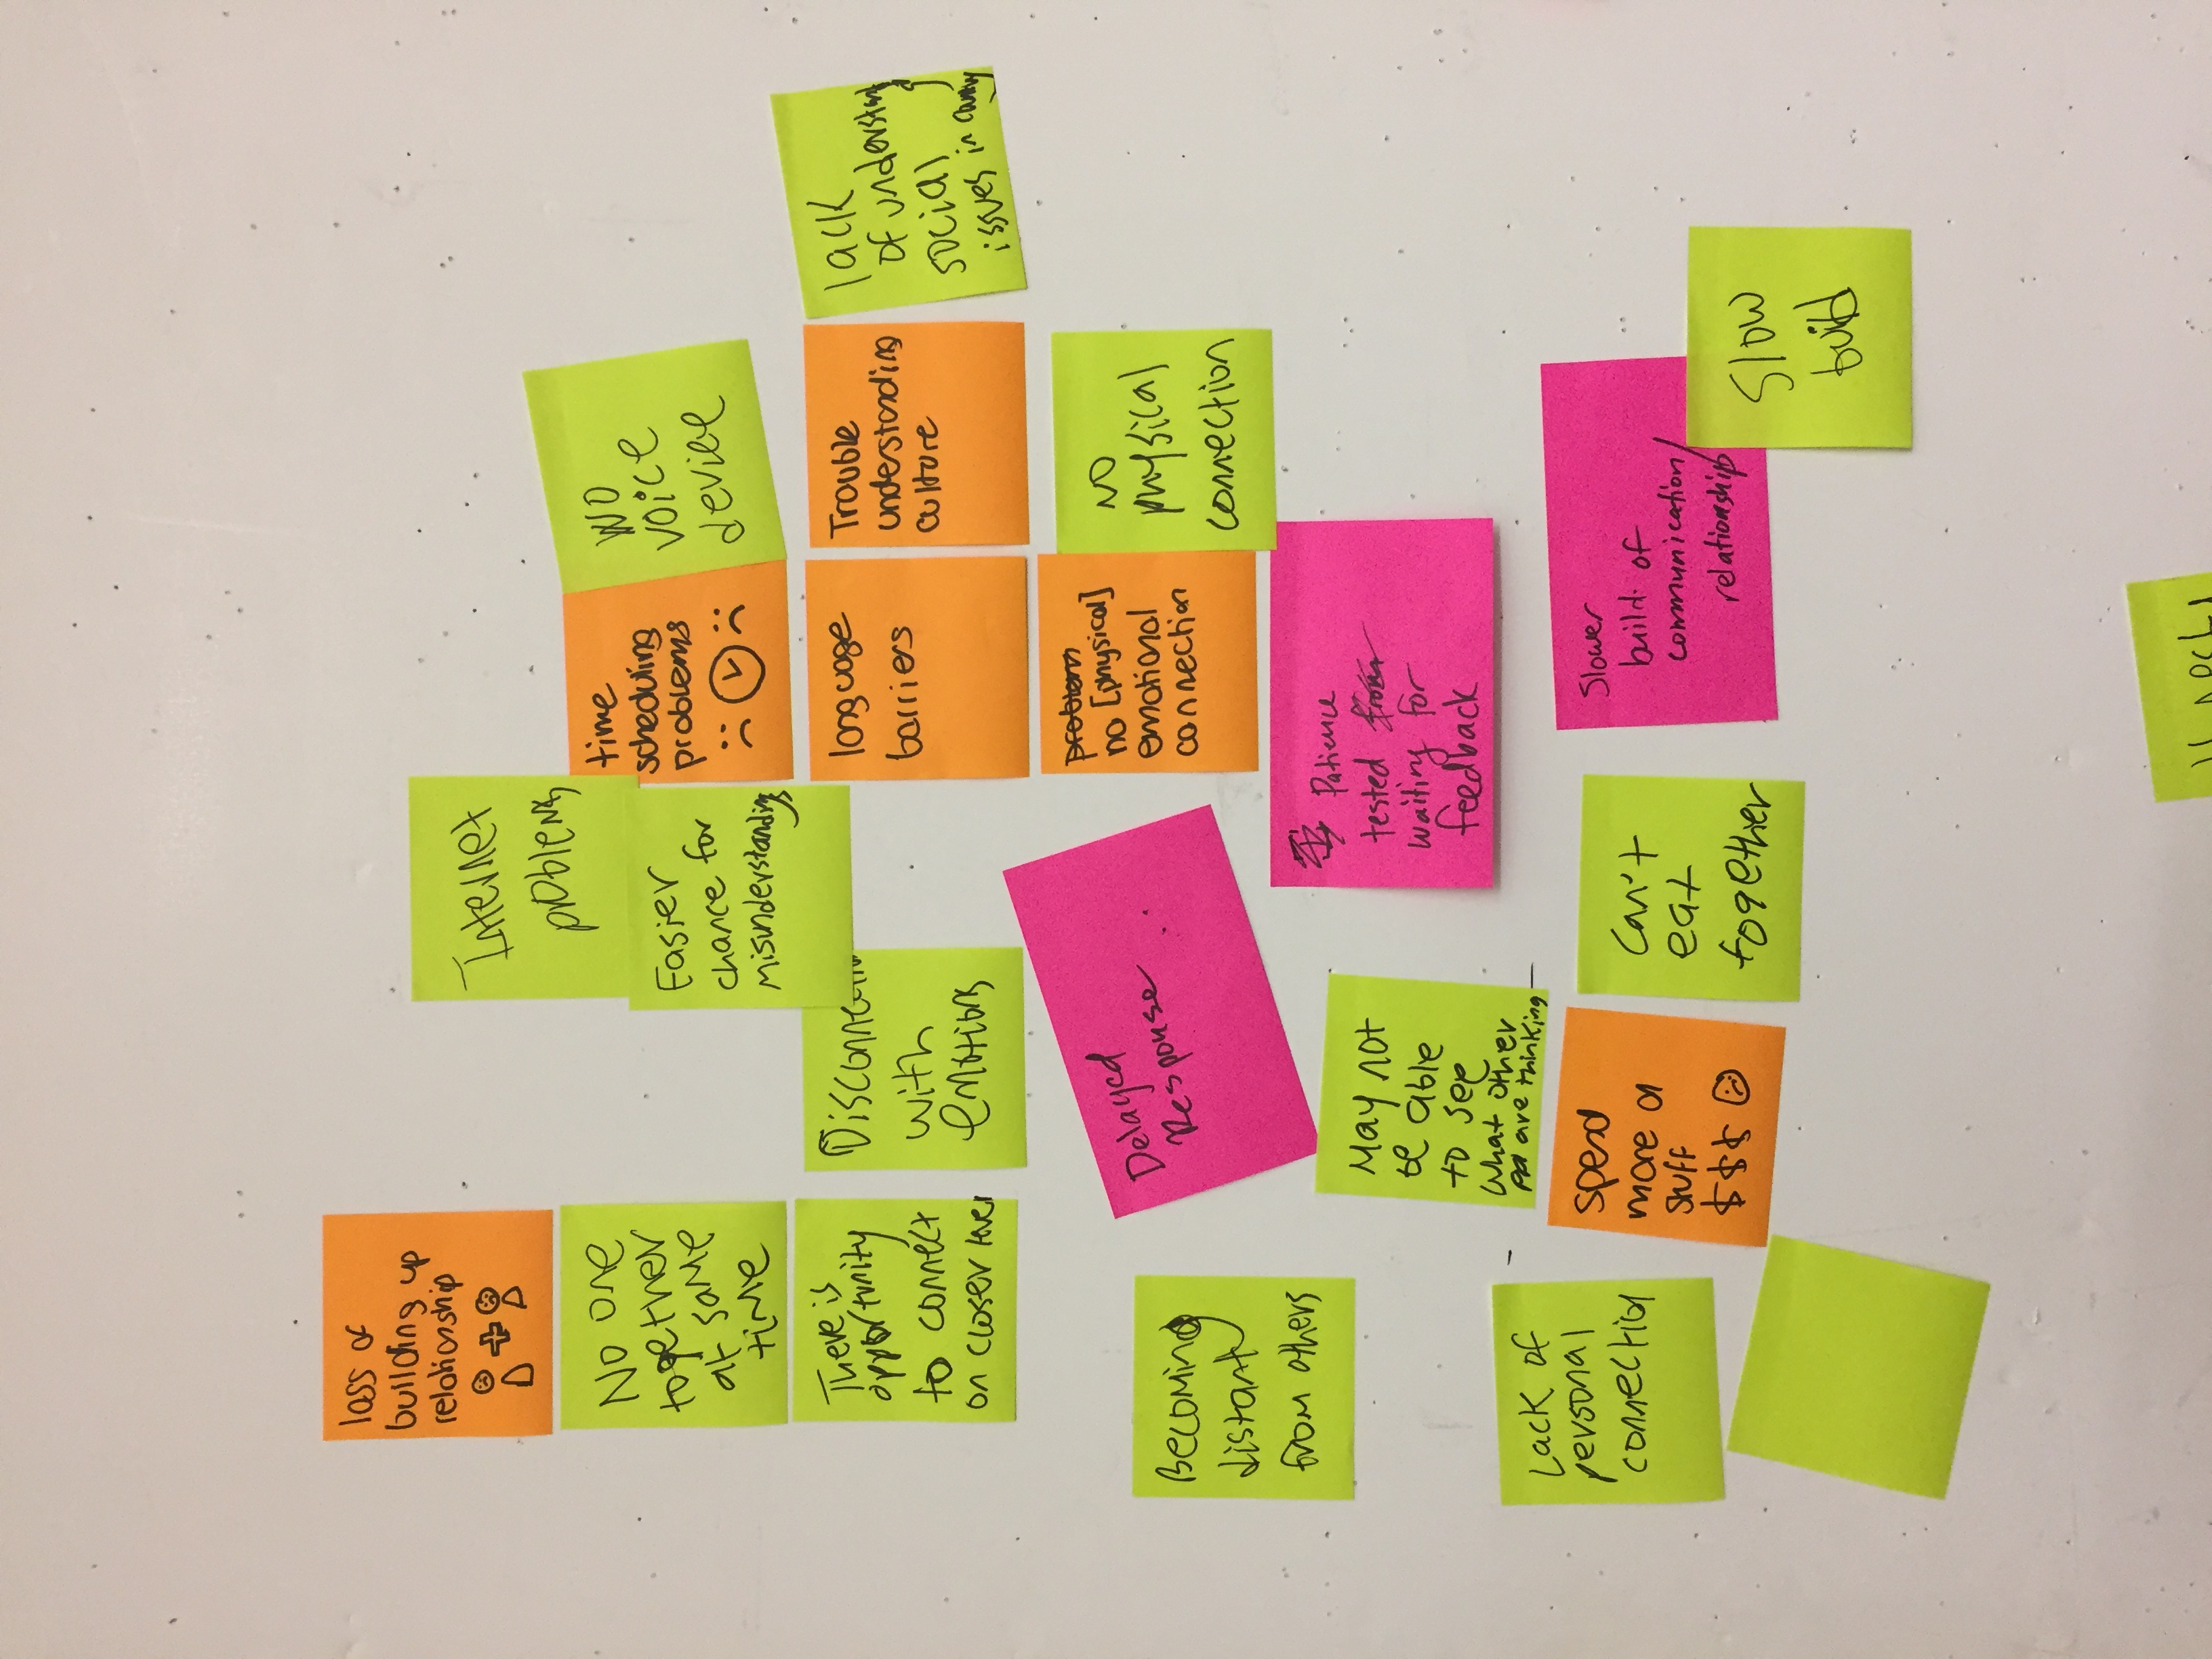 loss of
building up
relationship
No one
together
at same
time
There is
opportunity
to connect
on closer level
Disconnection
with
emotions
Internet
problems
Easier
chance for
misunderstandings
time
scheduling
problems
NO
voice
device
language
barriers
Trouble
understanding
culture
lack
of understanding
social
issues in country
Delayed
Response ...
problem
no [physical]
emotional
connection
NO
physical
connection
Becoming
distant
from others
May not
be able
to see
what other
ppl are thinking
Patience
tested from
waiting for
feedback
Lack of
personal
connection
spend
more on
stuff
$$$
Can't
eat
together
Slower
build of
communication/
relationship
Slow
build